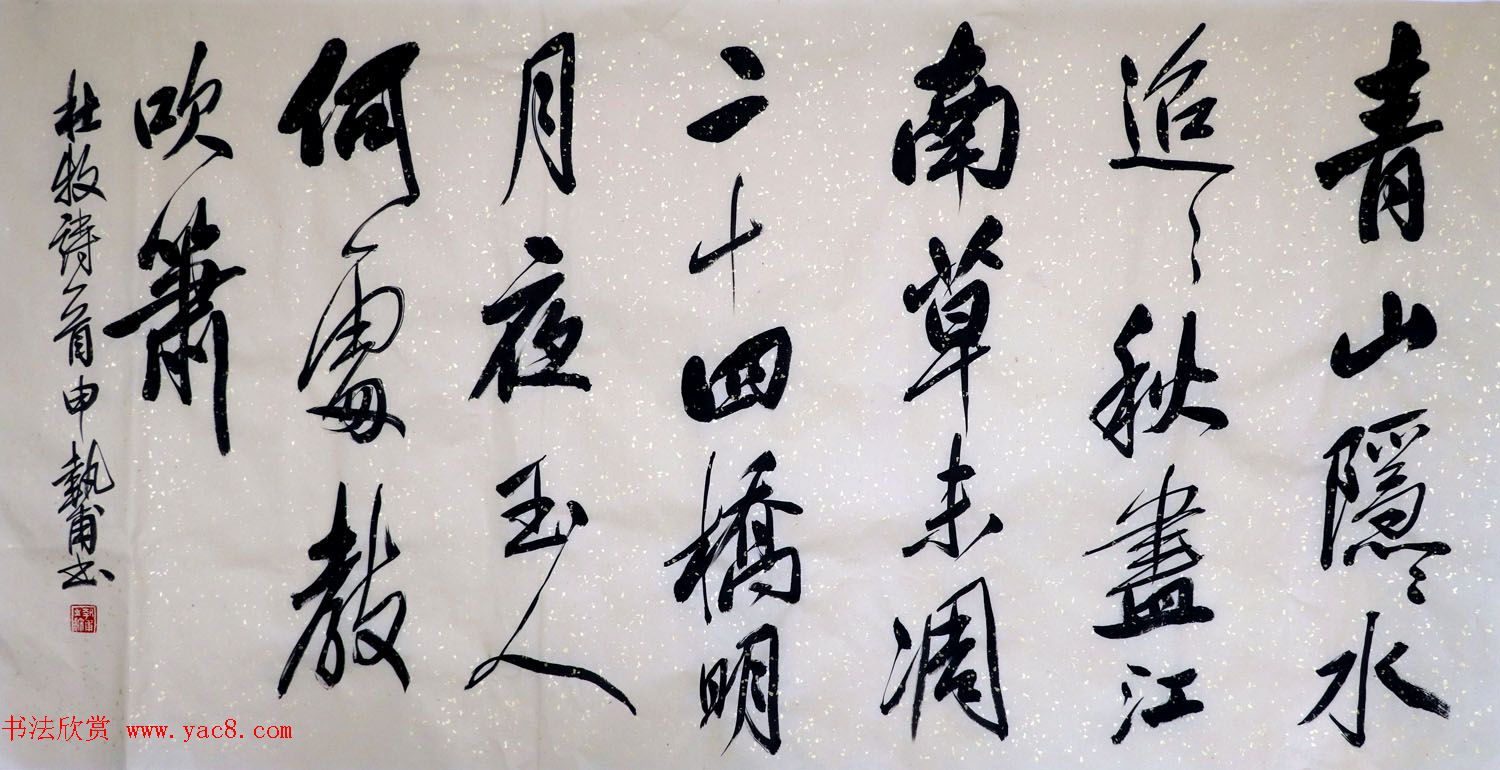 青山隱〻水
迢〻秋盡江
南草未凋
二十四橋明
月夜玉人
何處教
吹簫
杜牧詩一首申執甫书
书法欣赏 www.yac8.com